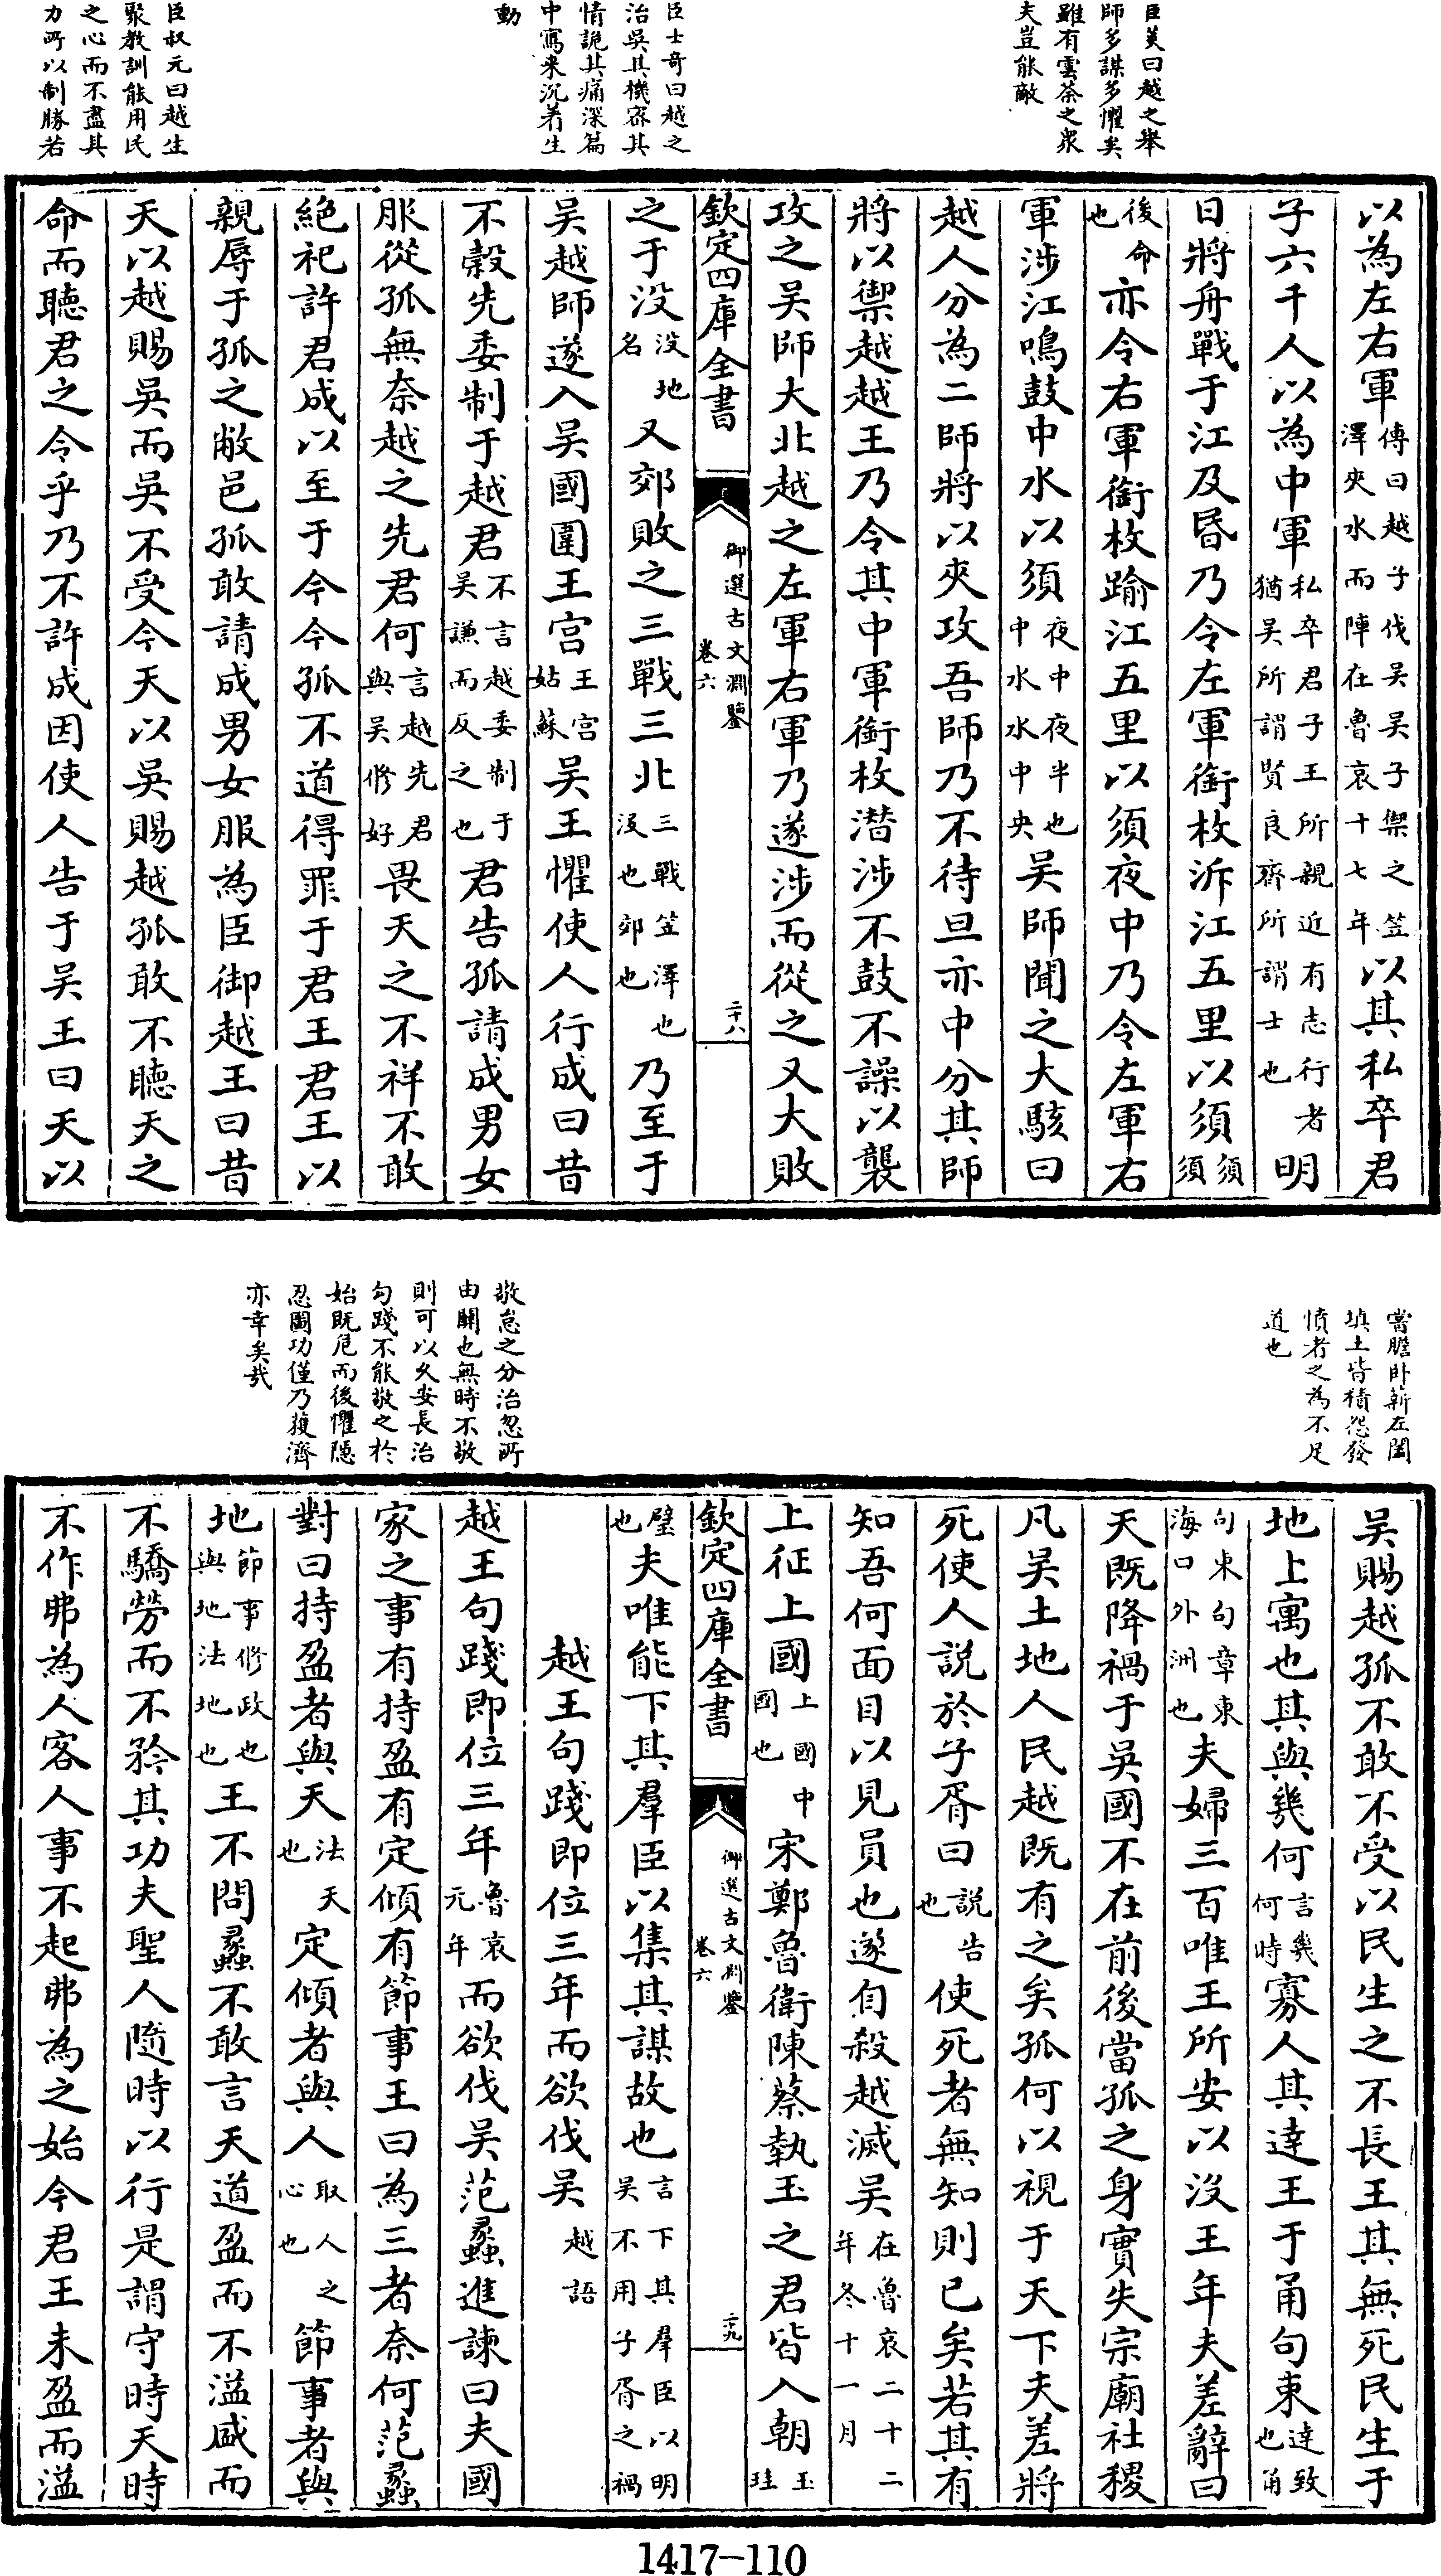 臣英曰越之舉
師多謀多懼矣
雖有雲荼之衆
夫豈能敵
臣士奇曰越之
治吳其機密其
情詭其痛深篇
中寫來沉著生
動
臣叔元曰越生
聚教訓能用民
之心而不盡其
力所以制勝若
以為左右軍傳曰越子伐吳吳子禦之笠澤夾水而陣在魯哀十七年以其私卒君
子六千人以為中軍私卒君子王所親近有志行者猶吳所謂賢良齊所謂士也明
日將舟戰于江及昏乃令左軍銜枚泝江五里以須須須
後命也亦令右軍銜枚踰江五里以須夜中乃令左軍右
軍涉江鳴鼓中水以須夜中夜半也中水水中央吳師聞之大駭曰
越人分為二師將以夾攻吾師乃不待旦亦中分其師
將以禦越越王乃令其中軍銜枚潛涉不鼓不譟以襲
攻之吳師大北越之左軍右軍乃遂涉而從之又大敗
欽定四庫全書 御選古文淵鑒 卷六 二十八
之于没没地名又郊敗之三戰三北三戰笠澤也没也郊也乃至于
吳越師遂入吳國圍王宫王宫姑蘇吳王懼使人行成曰昔
不穀先委制于越君不言越委制于吳謙而反之也君告孤請成男女
服從孤無奈越之先君何言越先君與吳修好畏天之不祥不敢
絶祀許君成以至于今今孤不道得罪于君王君王以
親辱于孤之敝邑孤敢請成男女服為臣御越王曰昔
天以越賜吳而吳不受今天以吳賜越孤敢不聽天之
命而聽君之令乎乃不許成因使人告于吳王曰天以
嘗膽卧薪左闔
填土皆積怨發
憤者之為不足
道也
敬怠之分治忽所
由關也無時不敬
則可以久安長治
勾踐不能敬之於
始既危而後懼隱
忍圖功僅乃獲濟
亦幸矣哉
吳賜越孤不敢不受以民生之不長王其無死民生于
地上寓也其與幾何言幾何時寡人其達王于甬句東達致也甬
句東句章東海口外洲也夫婦三百唯王所安以沒王年夫差辭曰
天既降禍于吳國不在前後當孤之身實失宗廟社稷
凡吳土地人民越既有之矣孤何以視于天下夫差將
死使人説於子胥曰説告也使死者無知則已矣若其有
知吾何面目以見員也遂自殺越滅吳在魯哀二十二年冬十一月
上征上國上國中國也宋鄭魯衛陳蔡執玉之君皆入朝玉珪
欽定四庫全書 御選古文淵鑒 卷六 二十九
璧也夫唯能下其羣臣以集其謀故也言下其羣臣以明吳不用子胥之禍
越王句踐即位三年而欲伐吳越語
越王句踐即位三年魯哀元年而欲伐吳范蠡進諫曰夫國
家之事有持盈有定傾有節事王曰為三者奈何范蠡
對曰持盈者與天法天也定傾者與人取人之心也節事者與
地節事修政也與地法地也王不問蠡不敢言天道盈而不溢盛而
不驕勞而不矜其功夫聖人隨時以行是謂守時天時
不作弗為人客人事不起弗為之始今君王未盈而溢
1417-110